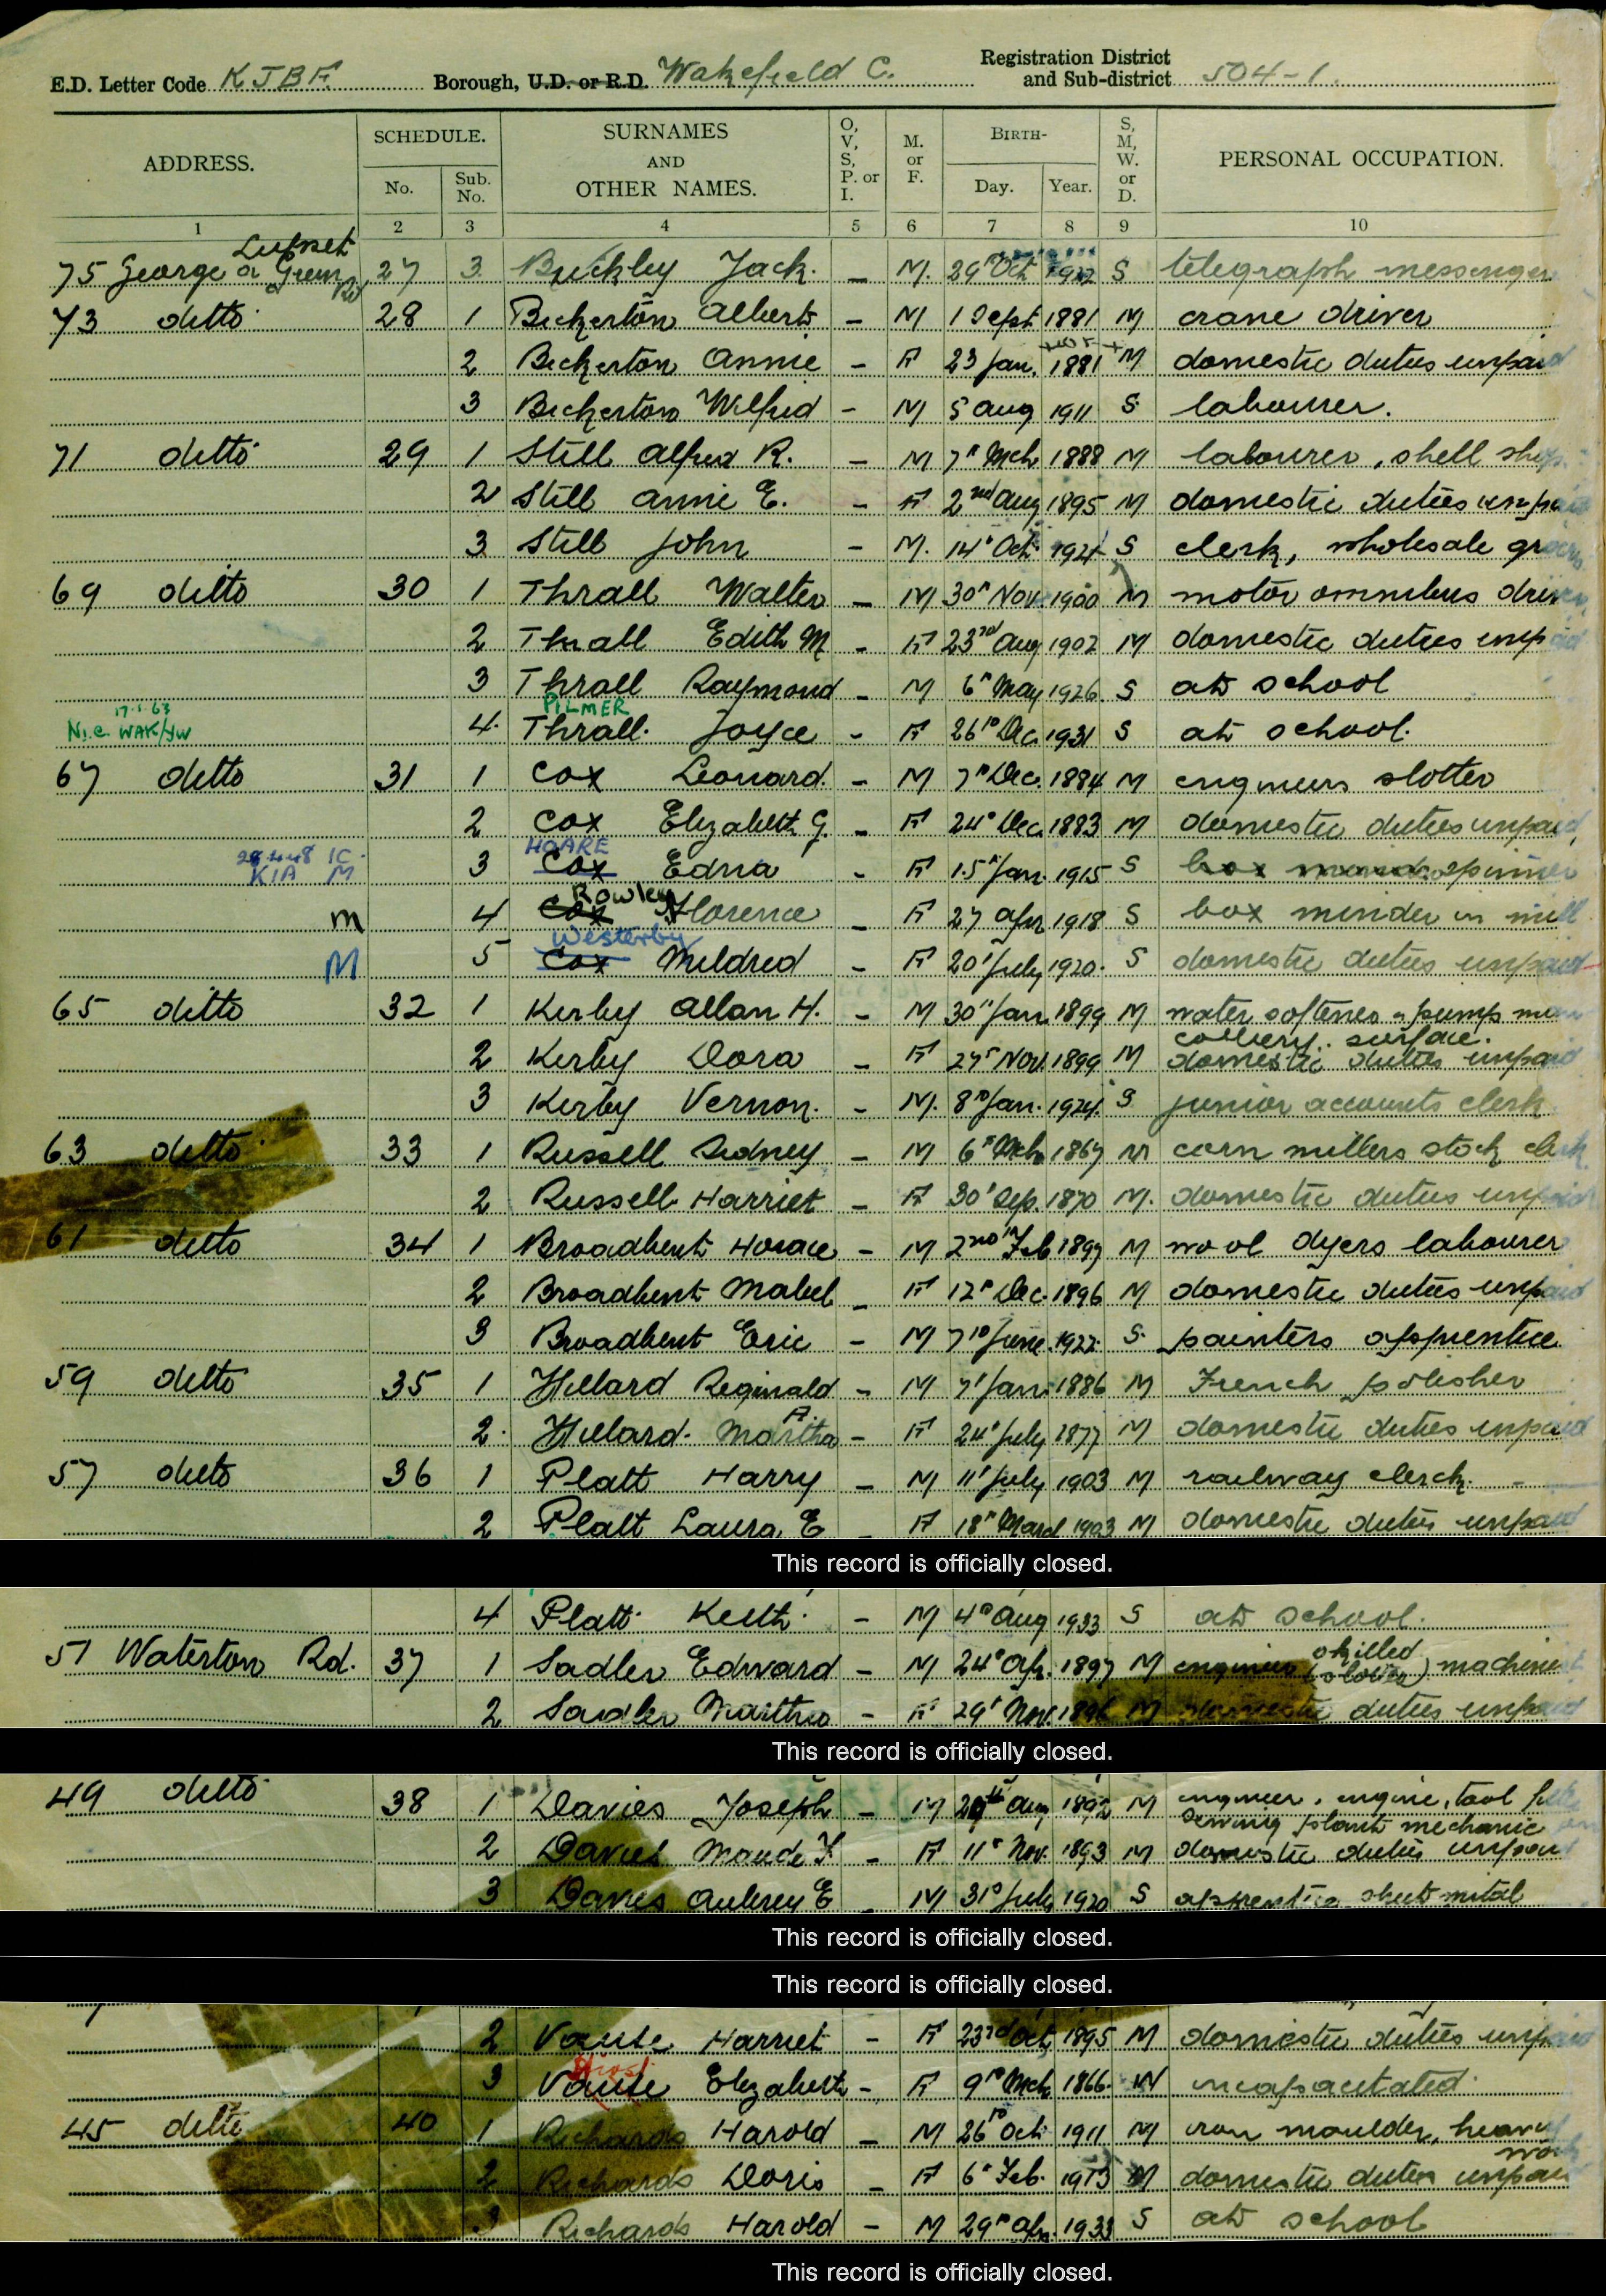 E.D. Letter Code KJBF. Borough, U.D. or R.D. Wakefield C. Registration District and Sub-district 504-1.
ADDRESS. SCHEDULE. No. Sub. No. SURNAMES AND OTHER NAMES. O, V, S, P. or I. M. or F. BIRTH- Day. Year. S, M, W. or D. PERSONAL OCCUPATION.
1 2 3 4 5 6 7 8 9 10
Lupset
75 George a Green Rd 27 3 Buckley Jack. — M. 29 Oct 1922 S telegraph messenger
73 ditto 28 1 Bickerton Albert — M 1 Sept 1881 M crane driver
2 Bickerton Annie — F 23 Jan. 1881 M domestic duties unpaid
3 Bickerton Wilfred — M 5 Aug 1911 S labourer.
71 ditto 29 1 Still Alfred R. — M 7th Mch 1888 M labourer, shell shop
2 Still Annie E. — F 2nd Aug 1895 M domestic duties unpaid
3 Still John — M. 14th Oct 1921 S clerk, wholesale grocery
69 ditto 30 1 Thrall Walter — M 30th Nov. 1900 M motor omnibus driver
2 Thrall Edith M — F 23rd Aug 1902 M domestic duties unpaid
3 Thrall Raymond — M 6th May 1926 S at school
17.1.63 PILMER
N.C. WAK/JW 4. Thrall. Joyce — F 26th Dec. 1931 S at school.
67 ditto 31 1 Cox Leonard. — M 7th Dec. 1884 M engineers slotter
2 Cox Elizabeth G. — F 24th Dec. 1883 M domestic duties unpaid
HOARE
KIA M 3 Cox Edna — F 15th Jan. 1915 S box spinner
Rowley
m 4 Cox Florence F 27 Apr 1918 S box minder in mill
Westerby
M 5 Cox Mildred — F 20th July 1920. S domestic duties unpaid
65 ditto 32 1 Kerby Allan H. — M 30th Jan. 1899 M water softener & pump man
colliery. surface.
2 Kerby Dora — F 27th Nov. 1899 M domestic duties unpaid
3 Kerby Vernon. — M. 8th Jan. 1924. S junior accounts clerk
63 ditto 33 1 Russell Sidney — M 6th Mch 1867 M corn millers stock clerk
2 Russell Harriet — F 30th Sep. 1870 M. domestic duties unpaid
61 ditto 34 1 Broadbent Horace — M 2nd Feb 1897 M wool dyers labourer
2 Broadbent Mabel — F 12th Dec. 1896 M domestic duties unpaid
3 Broadbent Eric — M 7th June 1922 S. painters apprentice
59 ditto 35 1 Hillard Reginald — M 7th Jan. 1886 M French polisher
2. Hillard. Martha — F 24th July 1877 M domestic duties unpaid
57 ditto 36 1 Platt Harry — M 11th July 1903 M railway clerk. —
2 Platt Laura E — F 18th March 1903 M domestic duties unpaid
This record is officially closed.
4 Platt Keith. — M 4th Aug 1933 S at school.
51 Waterton Rd. 37 1 Sadler Edward — M 24th Ap. 1897 M engineer skilled (slotter) machinist
2 Sadler Martha — F 29th Nov. 1896 M domestic duties unpaid
This record is officially closed.
49 ditto 38 1 Davies Joseph — M 29th Aug 1892 M engineer, engine, tool
Sewing plant mechanic
2 Davies Maude F — F 11th Nov. 1893 M domestic duties unpaid
3 Davies Aubrey E — M 31st July 1920 S apprentice sheet metal
This record is officially closed.
This record is officially closed.
2 Vause Harriet — F 23rd Oct. 1895 M domestic duties unpaid
3 Vause Elizabeth — F 9th Mch 1866 W incapacitated
45 ditto 40 1 Richards Harold — M 26th Oct 1911 M iron moulder, heavy
work
2 Richards Doris — F 6th Feb. 1913 M domestic duties unpaid
3 Richards Harold — M 29th Ap. 1933 S at school
This record is officially closed.